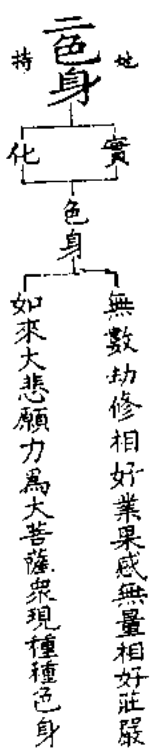 二色身
地持
實
化
色身
無數劫修相好業果感無量相好莊嚴
如來大悲願力爲大菩薩衆現種種色身